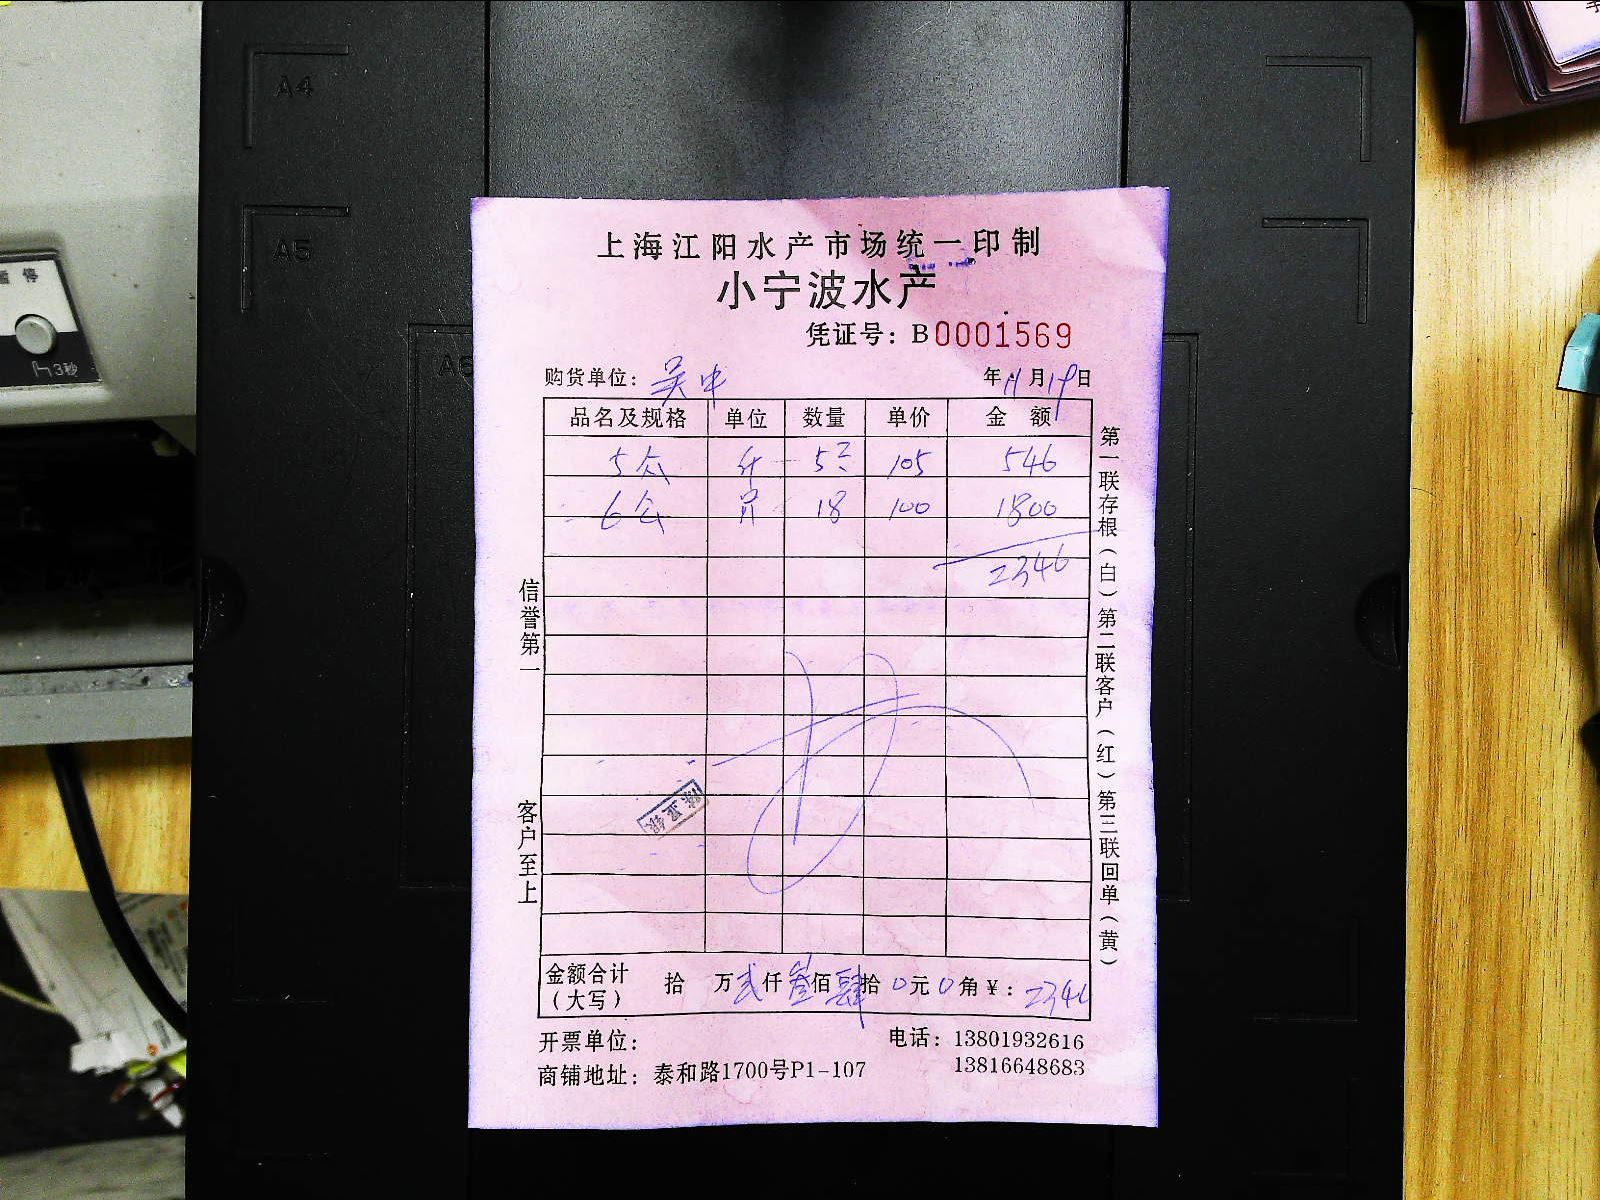 A4
A5
A6
暂停
3秒
上海江阳水产市场统一印制
小宁波水产
凭证号：B0001569
购货单位：吴中 年11月19日
品名及规格 单位 数量 单价 金额
5公 斤 5.2 105 546
6公 斤 18 100 1800
2346
信誉第一
客户至上
第一联存根（白）第二联客户（红）第三联回单（黄）
金额合计（大写） 拾 万贰仟叁佰肆拾0元0角￥：2346
开票单位： 电话：13801932616
商铺地址：泰和路1700号P1-107 13816648683